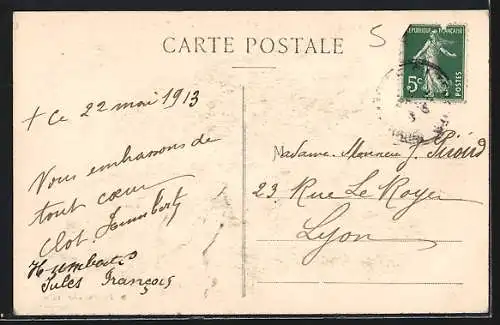 CARTE POSTALE
5
RÉPUBLIQUE FRANÇAISE
5c
POSTES
+ Ce 22 mai 1913
Vous embrassons de
tout cœur
Clot.
Jules François
Madame Monsieur J.
23 Rue Le Royer
Lyon